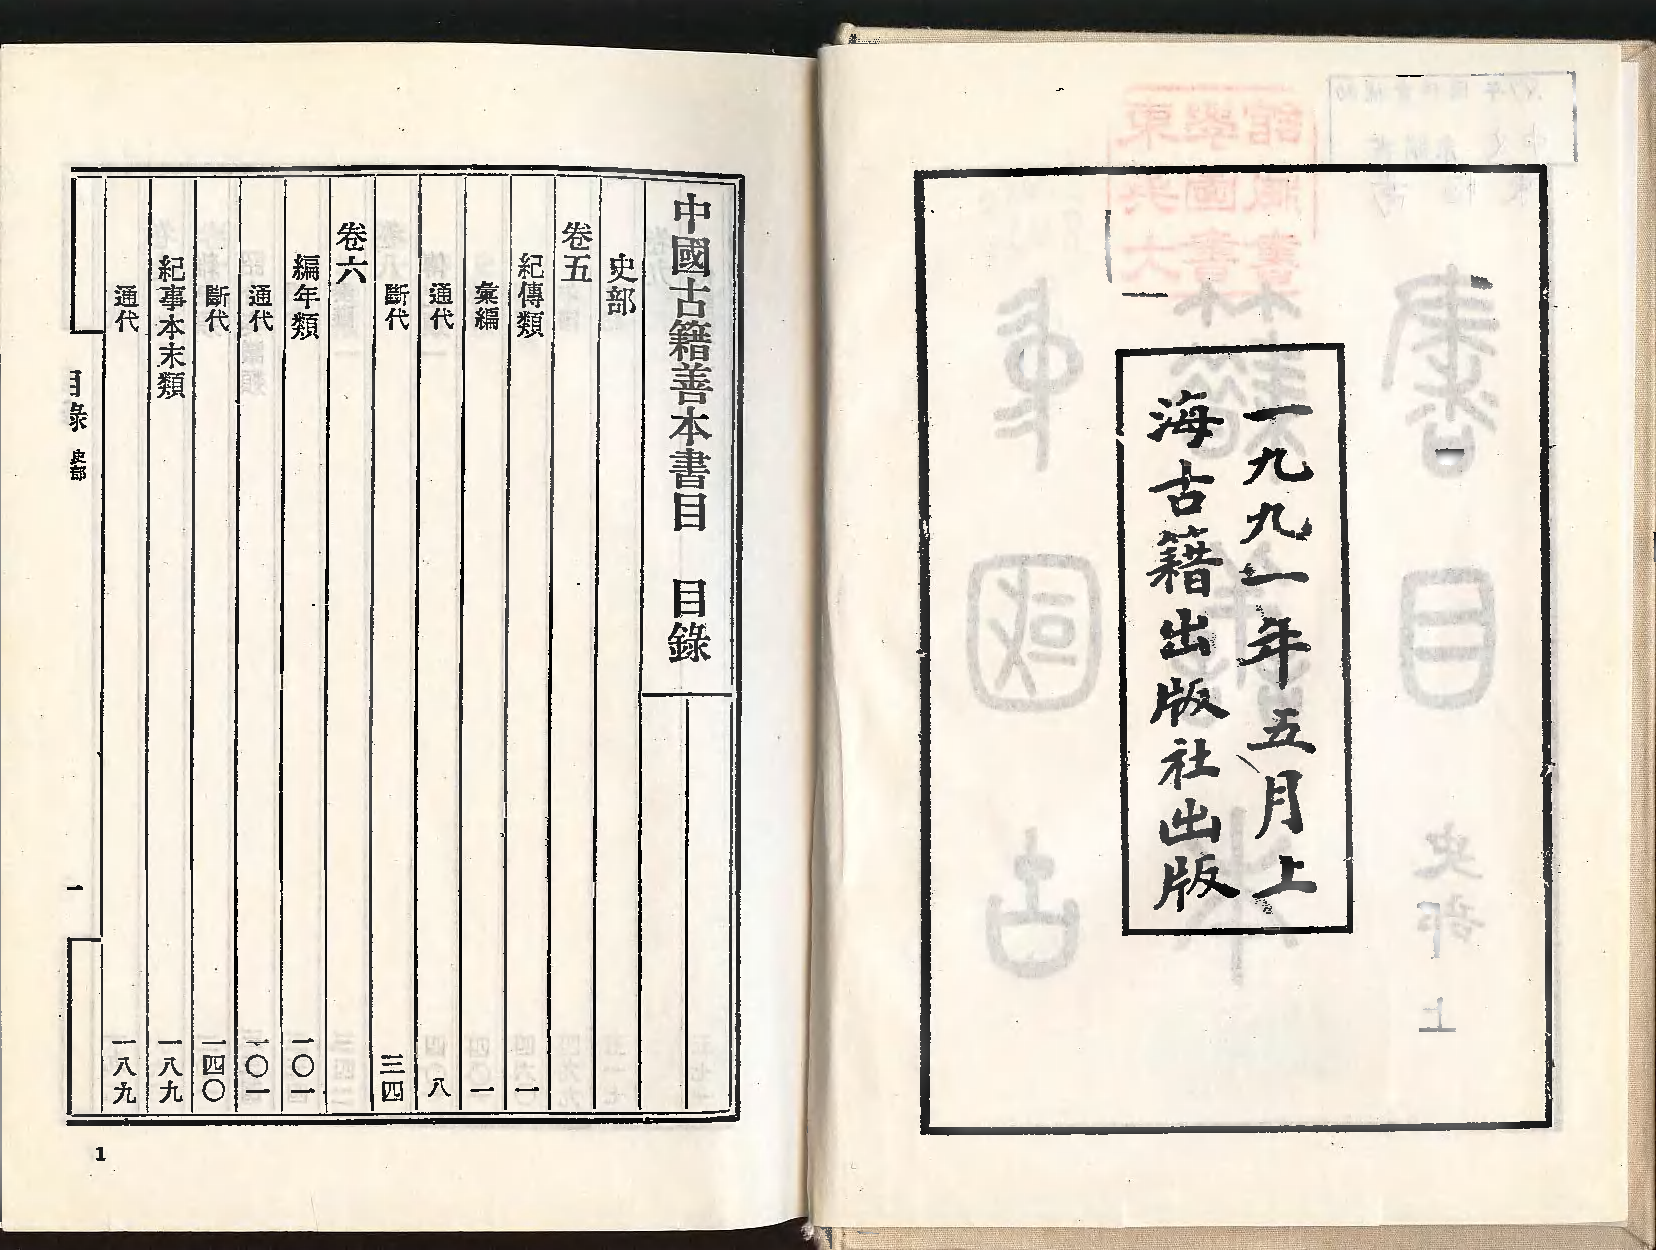 一九九一年五月上
海古籍出版社出版
中國古籍善本書目 目錄
史部
卷五
紀傳類 一
彙編 一
通代 八
斷代 三四
卷六
編年類 一〇一
通代 一〇一
斷代 一四〇
紀事本末類 一八九
通代 一八九
目錄 史部 一
1